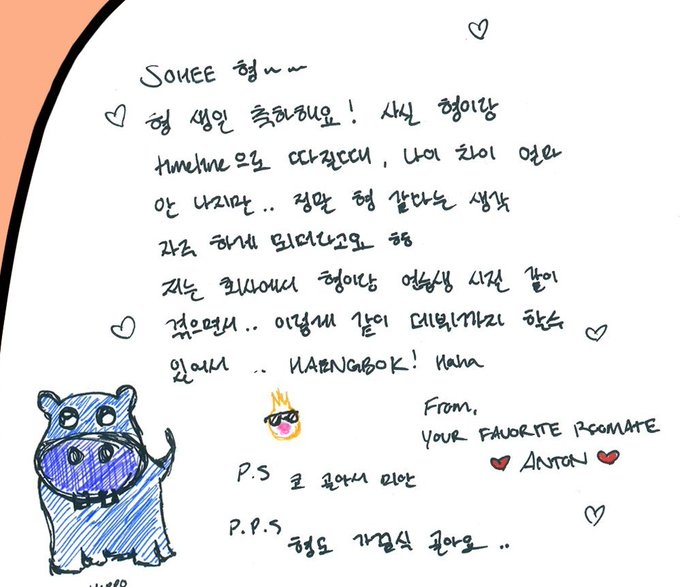 SOHEE 형~~
형 생일 축하해요! 사실 형이랑
timeline으로 따질때, 나이 차이 얼마
안 나지만.. 정말 형 같다는 생각
자주 하게 되더라고요 ㅎㅎ
저는 회사에서 형이랑 연습생 시절 같이
겪으면서.. 이렇게 같이 데뷔까지 할수
있어서 .. HAENGBOK! Haha
From,
YOUR FAVORITE ROOMATE
ANTON
P.S 코 골아서 미안
P.P.S 형도 가끔식 골아요 ..
HIPPO